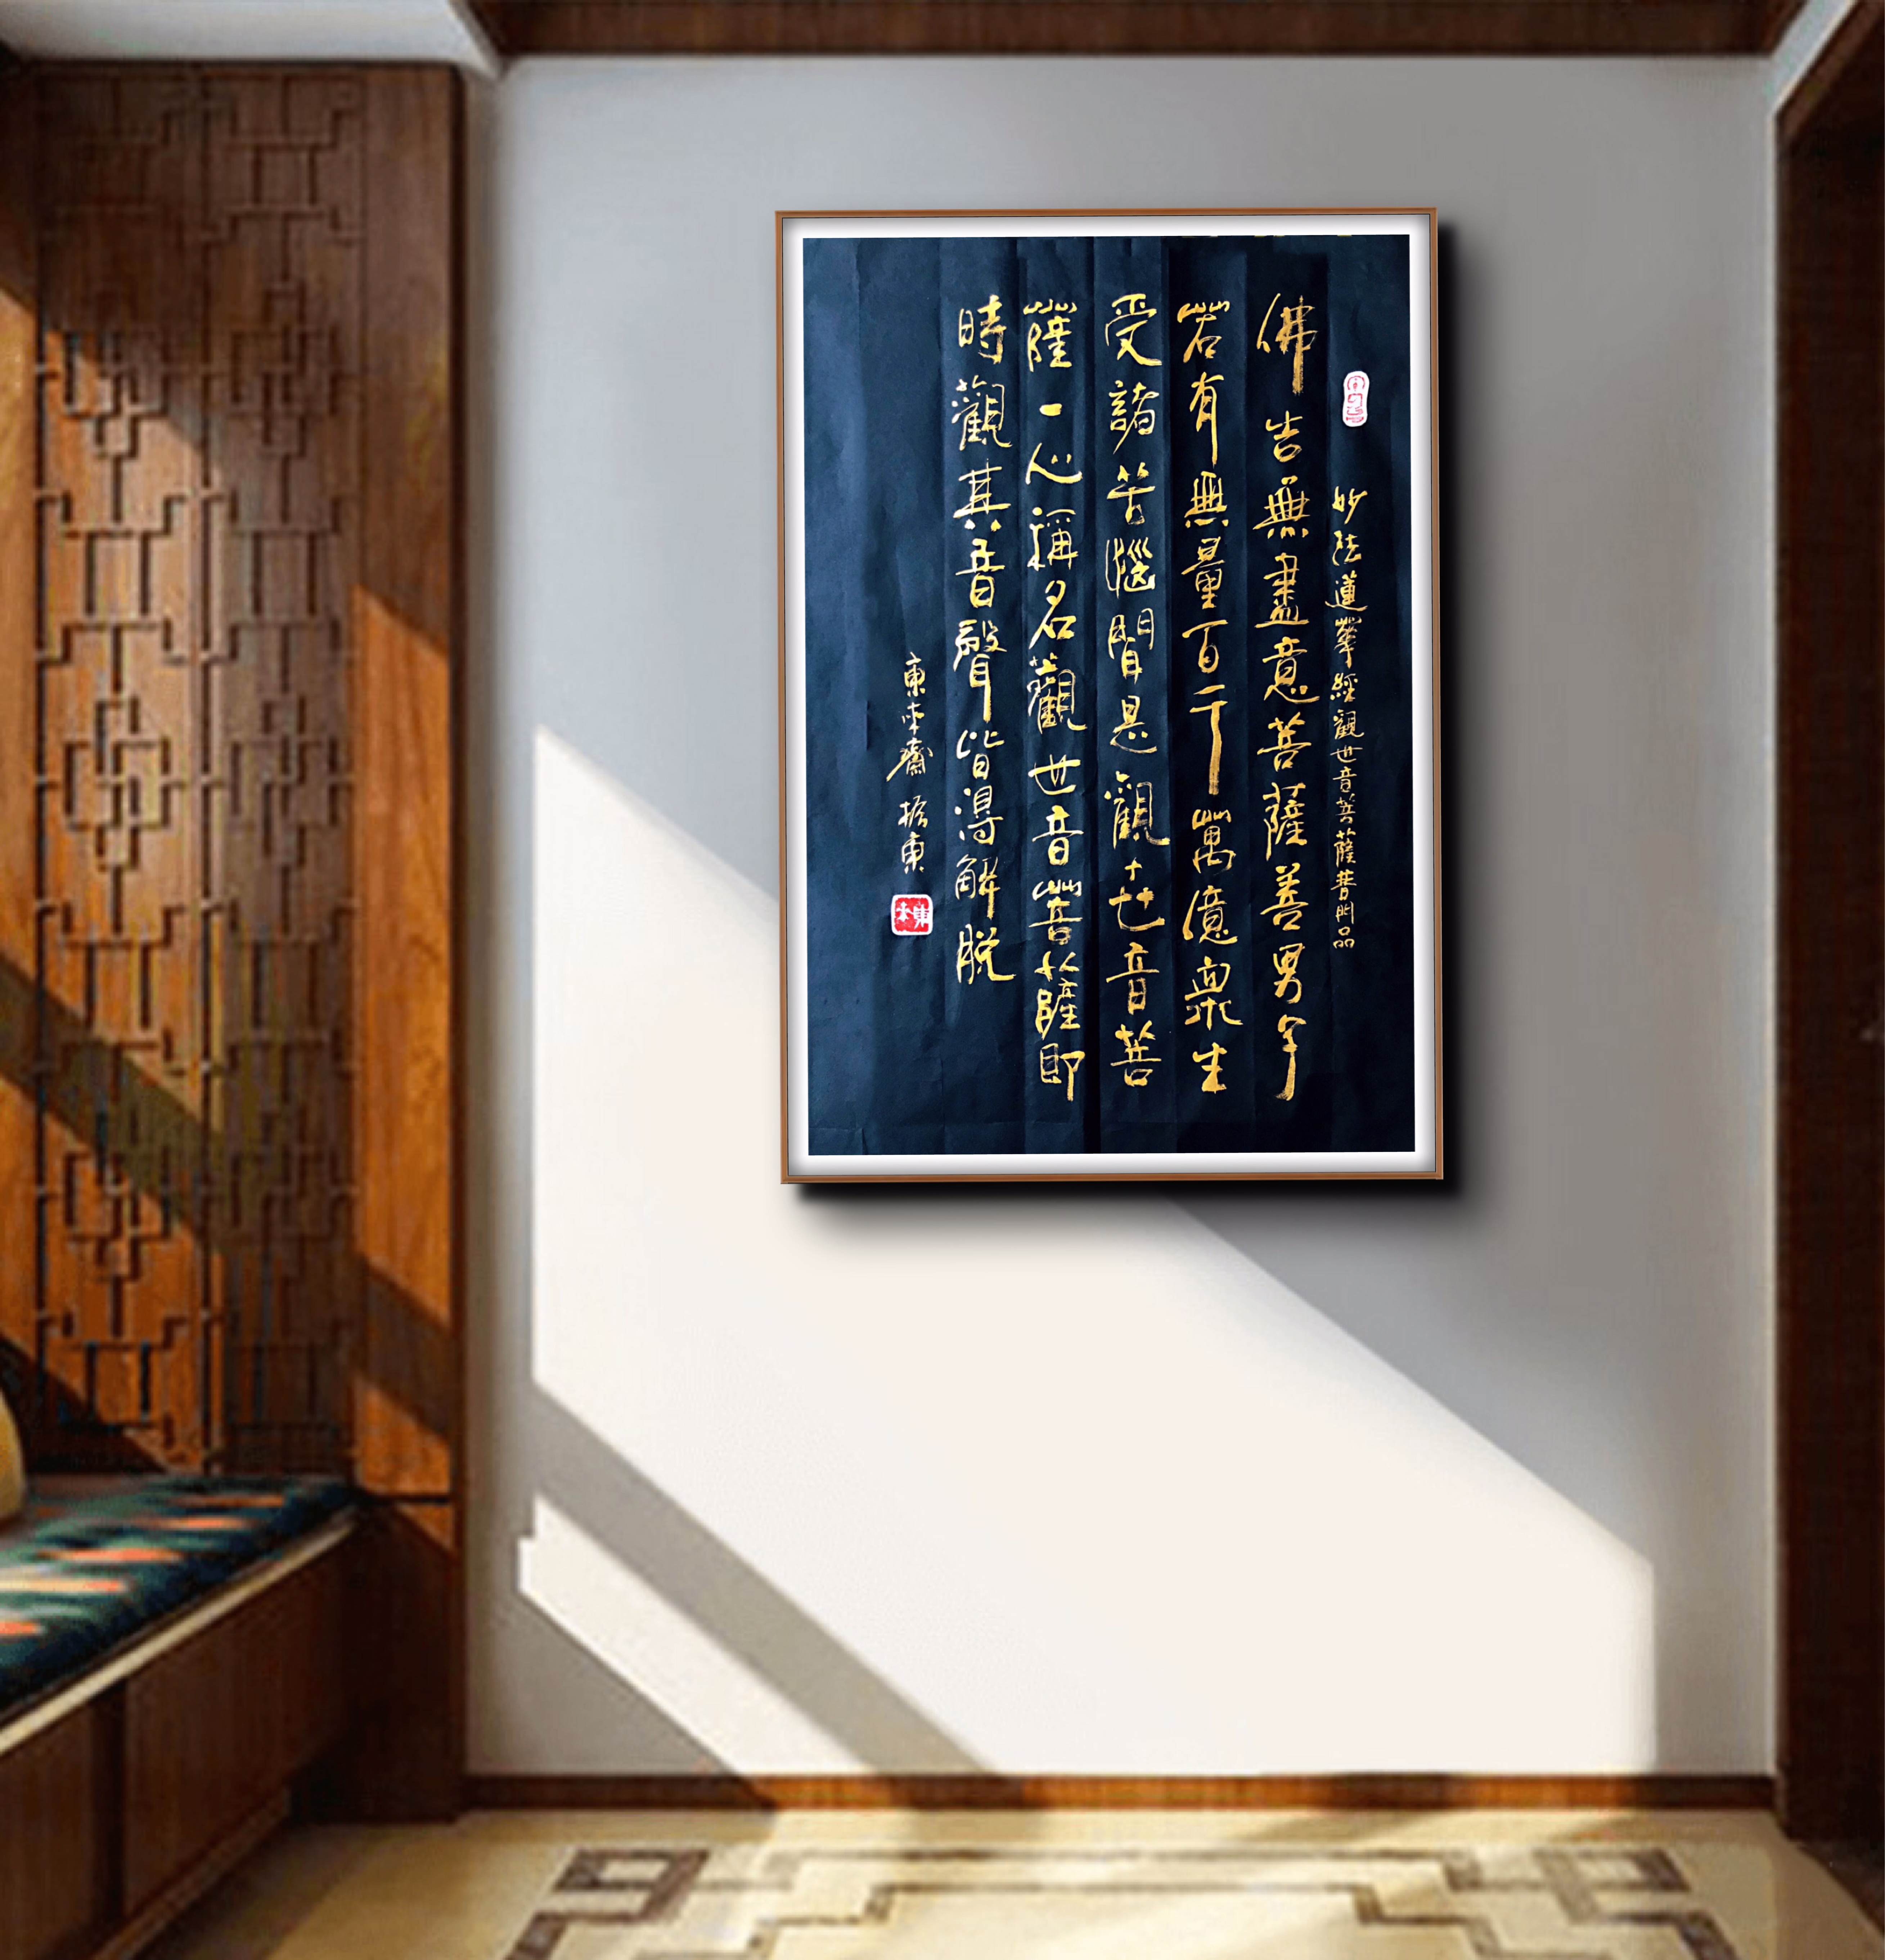 妙法蓮華經觀世音菩薩普門品
佛告無盡意菩薩善男子
若有無量百千萬億衆生
受諸苦惱聞是觀世音菩
薩一心稱名觀世音菩薩即
時觀其音聲皆得解脱
東本齋 振東
東本